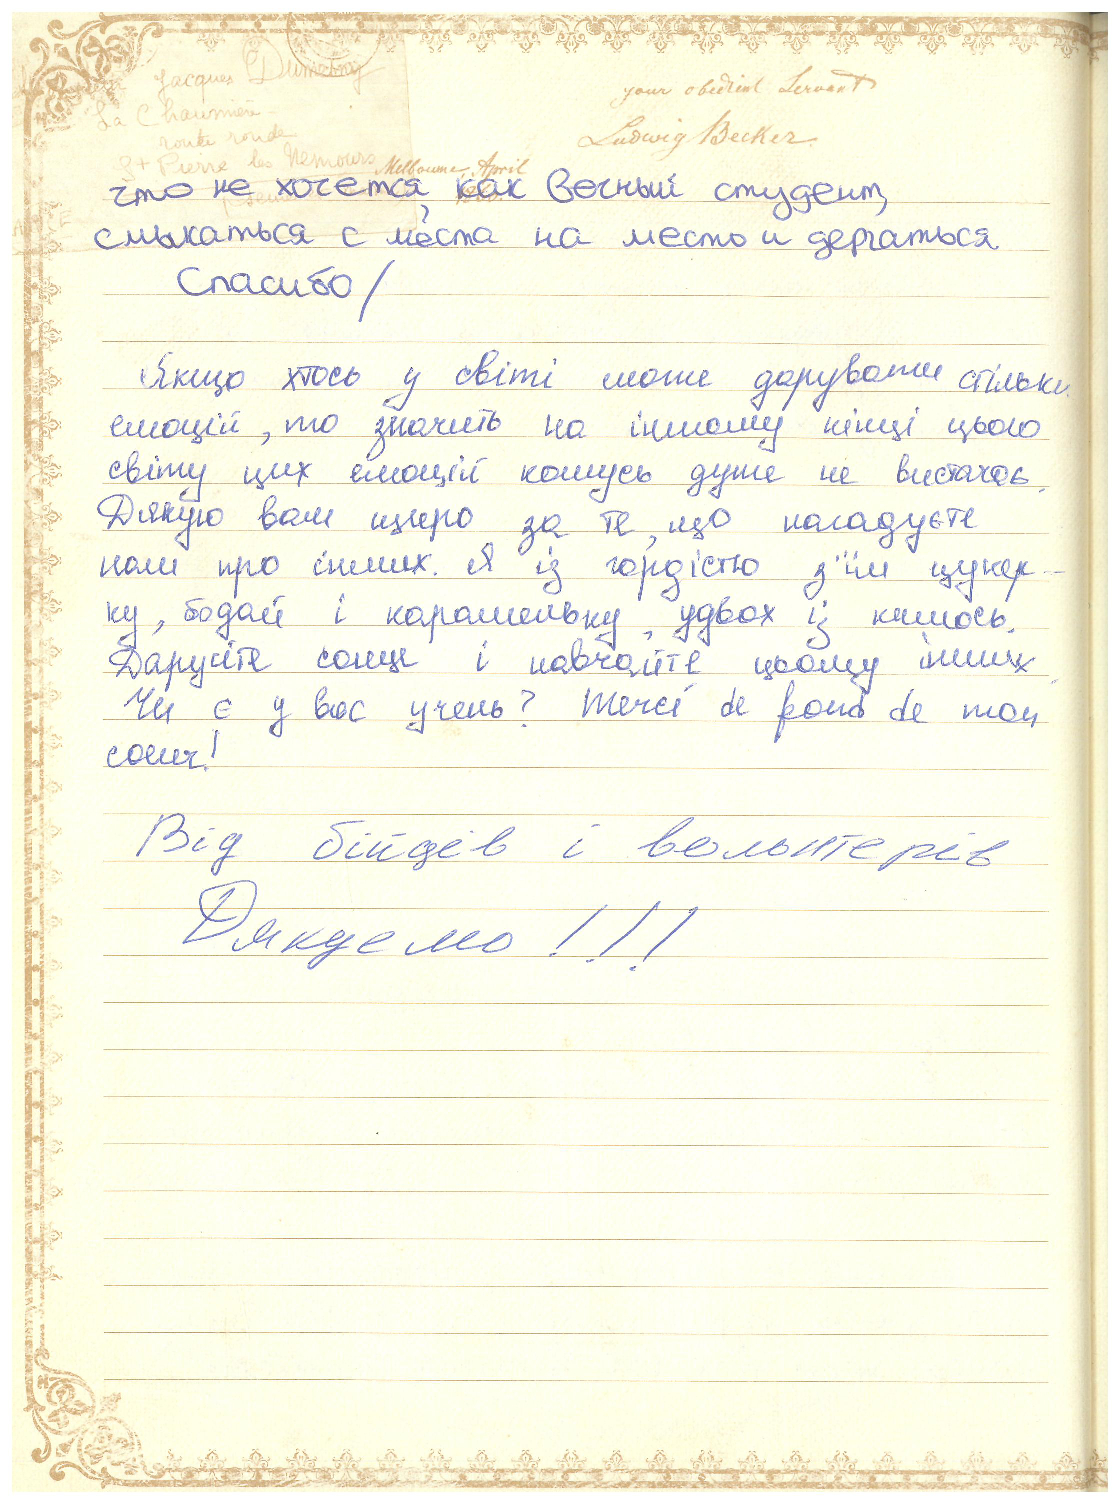 Jacques Dumesny
La Chaumière
route ronde
St Pierre les Nemours
your obedient Servant
Ludwig Becker
Melbourne, April
что не хочется, как вечный студент,
смыкаться с места на место и дергаться
Спасибо!
Якщо хтось у світі може дарувати стільки
емоцій, то значить на іншому кінці цього
світу цих емоцій комусь дуже не вистачає.
Дякую вам щиро за те, що нагадуєте
нам про інших. Я із гордістю з'їм цукер-
ку, бодай і карамельку, удвох із кимось.
Даруйте сонце і навчайте цьому інших.
Чи є у вас учень? Merci de fond de mon
coeur!
Від бійців і волонтерів
Дякуємо!!!